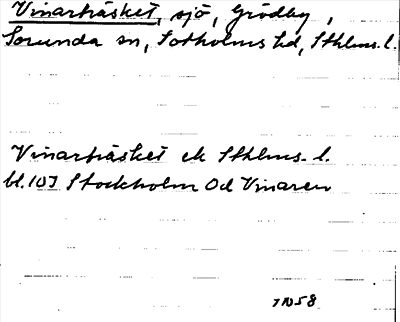 Vinarträsket, sjö, Grödby,
Sorunda sn, Sotholms hd, Sthlms. l.
Vinarträsket ek Sthlms. l.
bl. 107 Stockholm Od Vinaren
1958